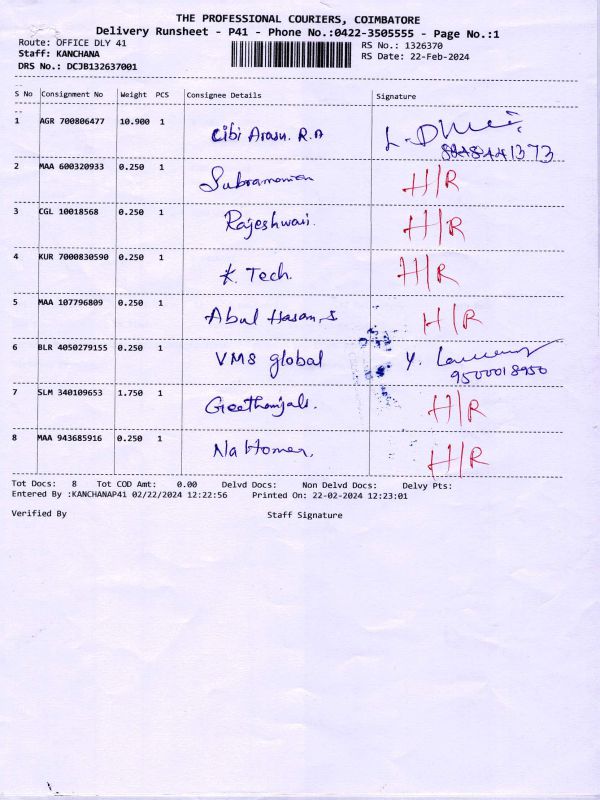 THE PROFESSIONAL COURIERS, COIMBATORE
Delivery Runsheet - P41 - Phone No.:0422-3505555 - Page No.:1
Route: OFFICE DLY 41 RS No.: 1326370
Staff: KANCHANA RS Date: 22-Feb-2024
DRS No.: DCJB132637001
S No Consignment No Weight PCS Consignee Details Signature
1 AGR 700806477 10.900 1 Cibi Arasu. R.A
2 MAA 600320933 0.250 1 Subramanian H/R
3 CGL 10018568 0.250 1 Rajeshwari. H/R
4 KUR 7000830590 0.250 1 K. Tech. H/R
5 MAA 107796809 0.250 1 Abul Hasan.S H/R
6 BLR 4050279155 0.250 1 VMS global Y.
9500018950
7 SLM 340109653 1.750 1 Geethanjali. H/R
8 MAA 943685916 0.250 1 H/R
Tot Docs: 8 Tot COD Amt: 0.00 Delvd Docs: Non Delvd Docs: Delvy Pts:
Entered By :KANCHANAP41 02/22/2024 12:22:56 Printed On: 22-02-2024 12:23:01
Verified By Staff Signature